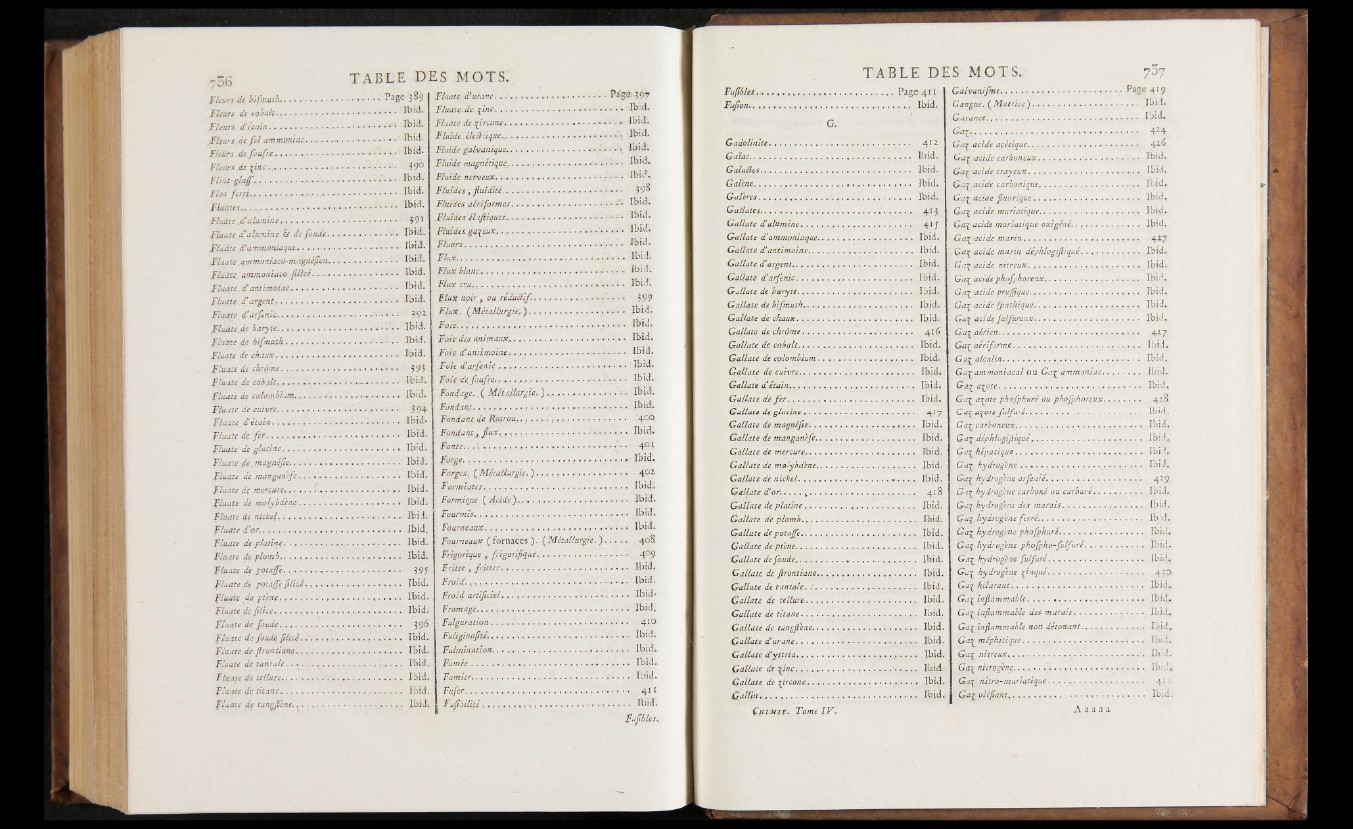 736
TABLE DES MOTS.
Fleurs de bismuth. Page 389
Fleurs de cobalt. Ibid.
Fleurs d'étain. Ibid.
Fleurs de sel ammoniac. Ibid.
Fleurs de soufre. Ibid.
Fleurs de zinc. 390
Flint-glass. Ibid.
Flos ferri. Ibid.
Fluates. Ibid.
Fluate d'alumine. 391
Fluate d'alumine & de soude. Ibid.
Fluate d'ammoniaque. Ibid.
Fluate ammoniaco-magnésien. Ibid.
Fluate ammoniaco-silicé. Ibid.
Fluate d'antimoine. Ibid.
Fluate d'argent. Ibid.
Fluate d'arsenic. 392
Fluate de baryte. Ibid.
Fluate de bismuth. Ibid.
Fluate de chaux. Ibid.
Fluate de chrôme. 393
Fluate de cobalt. Ibid.
Fluate de colombium. Ibid.
Fluate de cuivre. 394
Fluate d'étain. Ibid.
Fluate de fer. Ibid.
Fluate de glucine. Ibid.
Fluate de magnésie. Ibid.
Fluate de manganèse. Ibid.
Fluate de mercure. Ibid.
Fluate de molybdène. Ibid.
Fluate de nickel. Ibid.
Fluate d'or. Ibid.
Fluate de platine. Ibid.
Fluate de plomb. Ibid.
Fluate de potasse. 395
Fluate de potasse silicé. Ibid.
Fluate de ptène. Ibid.
Fluate de silice. Ibid.
Fluate de soude. 396
Fluate de soude silicé. Ibid.
Fluate de strontiane. Ibid.
Fluate de tantale. Ibid.
Fluate de tellure. Ibid.
Fluate de titane. Ibid.
Fluate de tungstène. Ibid.
Fluate d'urane. Page 397
Fluate de zinc. Ibid.
Fluate de zircone. Ibid.
Fluide électrique. Ibid.
Fluide galvanique. Ibid.
Fluide magnétique. Ibid.
Fluide nerveux. Ibid.
Fluides, fluidité. 398
Fluides aériformes. Ibid.
Fluides élastiques. Ibid.
Fluides gazeux. Ibid.
Fluors. Ibid.
Flux. Ibid.
Flux blanc. Ibid.
Flux cru. Ibid.
Flux noir, ou réductif. 399
Flux. (Métallurgie.) Ibid.
Foie. Ibid.
Foie des animaux. Ibid.
Foie d'antimoine. Ibid.
Foie d'arsenic. Ibid.
Foie de soufre. Ibid.
Fondage. (Métallurgie.) Ibid.
Fondant. Ibid.
Fondant de Rotrou. 400
Fondant, flux. Ibid.
Fonte. 401
Forge. Ibid.
Forges. (Métallurgie.) 402
Formiates. Ibid.
Formique (Acide). Ibid.
Fourmis. Ibid.
Fourneaux. Ibid.
Fourneaux (fornaces). (Métallurgie.) 408
Frigorique, frigorifique. 409
Fritte, fritter. Ibid.
Froid. Ibid.
Froid artificiel. Ibid.
Fromage. Ibid.
Fulguration. 410
Fuliginosité. Ibid.
Fulmination. Ibid.
Fumée. Ibid.
Fumier. Ibid.
Fuser. 411
Fusibilité. Ibid.
Fusibles.
TABLE DES MOTS.
737
Fusibles. Page 411
Fusion. Ibid.
G.
Gadolinite. 412
Gaïac. Ibid.
Galactes. Ibid.
Galène. Ibid.
Galères. Ibid.
Gallates. 413
Gallate d'alumine. 415
Gallate d'ammoniaque. Ibid.
Gallate d'antimoine. Ibid.
Gallate d'argent. Ibid.
Gallate d'arsenic. Ibid.
Gallate de baryte. Ibid.
Gallate de bismuth. Ibid.
Gallate de chaux. Ibid.
Gallate de chrôme. 416
Gallate de cobalt. Ibid.
Gallate de colombium. Ibid.
Gallate de cuivre. Ibid.
Gallate d'étain. Ibid.
Gallate de fer. Ibid.
Gallate de glucine. 417
Gallate de magnésie. Ibid.
Gallate de manganèse. Ibid.
Gallate de mercure. Ibid.
Gallate de molybdène. Ibid.
Gallate de nickel. Ibid.
Gallate d'or. 418
Gallate de platine. Ibid.
Gallate de plomb. Ibid.
Gallate de potasse. Ibid.
Gallate de ptène. Ibid.
Gallate de soude. Ibid.
Gallate de strontiane. Ibid.
Gallate de tantale. Ibid.
Gallate de tellure. Ibid.
Gallate de titane. Ibid.
Gallate de tungstène. Ibid.
Gallate d'urane. Ibid.
Gallate d'yttria. Ibid.
Gallate de zinc. Ibid.
Gallate de zircone. Ibid.
Gallin. Ibid.
CHIMIE. Tome IV.
Galvanisme. Page 419
Gangue. (Matrice.) Ibid.
Garance. Ibid.
Gaz. 424
Gaz acide acétique. 426
Gaz acide carboneux. Ibid.
Gaz acide crayeux. Ibid.
Gaz acide carbonique. Ibid.
Gaz acide fluorique. Ibid.
Gaz acide muriatique. Ibid.
Gaz acide muriatique oxigéné. Ibid.
Gaz acide marin. 427
Gaz acide marin déphlogistiqué. Ibid.
Gaz acide nitreux. Ibid.
Gaz acide phosphoreux. Ibid.
Gaz acide prussique. Ibid.
Gaz acide spathique. Ibid.
Gaz acide sulfureux. Ibid.
Gaz aérien. 427
Gaz aériforme. Ibid.
Gaz alcalin. Ibid.
Gaz ammoniacal ou Gaz ammoniac. Ibid.
Gaz azote. Ibid.
Gaz azote phosphuré ou phosphoreux. 428
Gaz azote sulfuré. Ibid.
Gaz carboneux. Ibid.
Gaz déphlogistiqué. Ibid.
Gaz hépatique. Ibid.
Gaz hydrogène. Ibid.
Gaz hydrogène arsenié. 429
Gaz hydrogène carboné ou carburé. Ibid.
Gaz hydrogène des marais. Ibid.
Gaz hydrogène ferré. Ibid.
Gaz hydrogène phosphuré. Ibid.
Gaz hydrogène phospho-sulfuré. Ibid.
Gaz hydrogène sulfuré. Ibid.
Gaz hydrogène zinqué. 430
Gaz hilarant. Ibid.
Gaz inflammable. Ibid.
Gaz inflammable des marais. Ibid.
Gaz inflammable non détonant. Ibid.
Gaz méphitique. Ibid.
Gaz nitreux. Ibid.
Gaz nitrogène. Ibid.
Gaz nitro-muriatique.
Gaz oléfiant. Ibid.
A a a a a